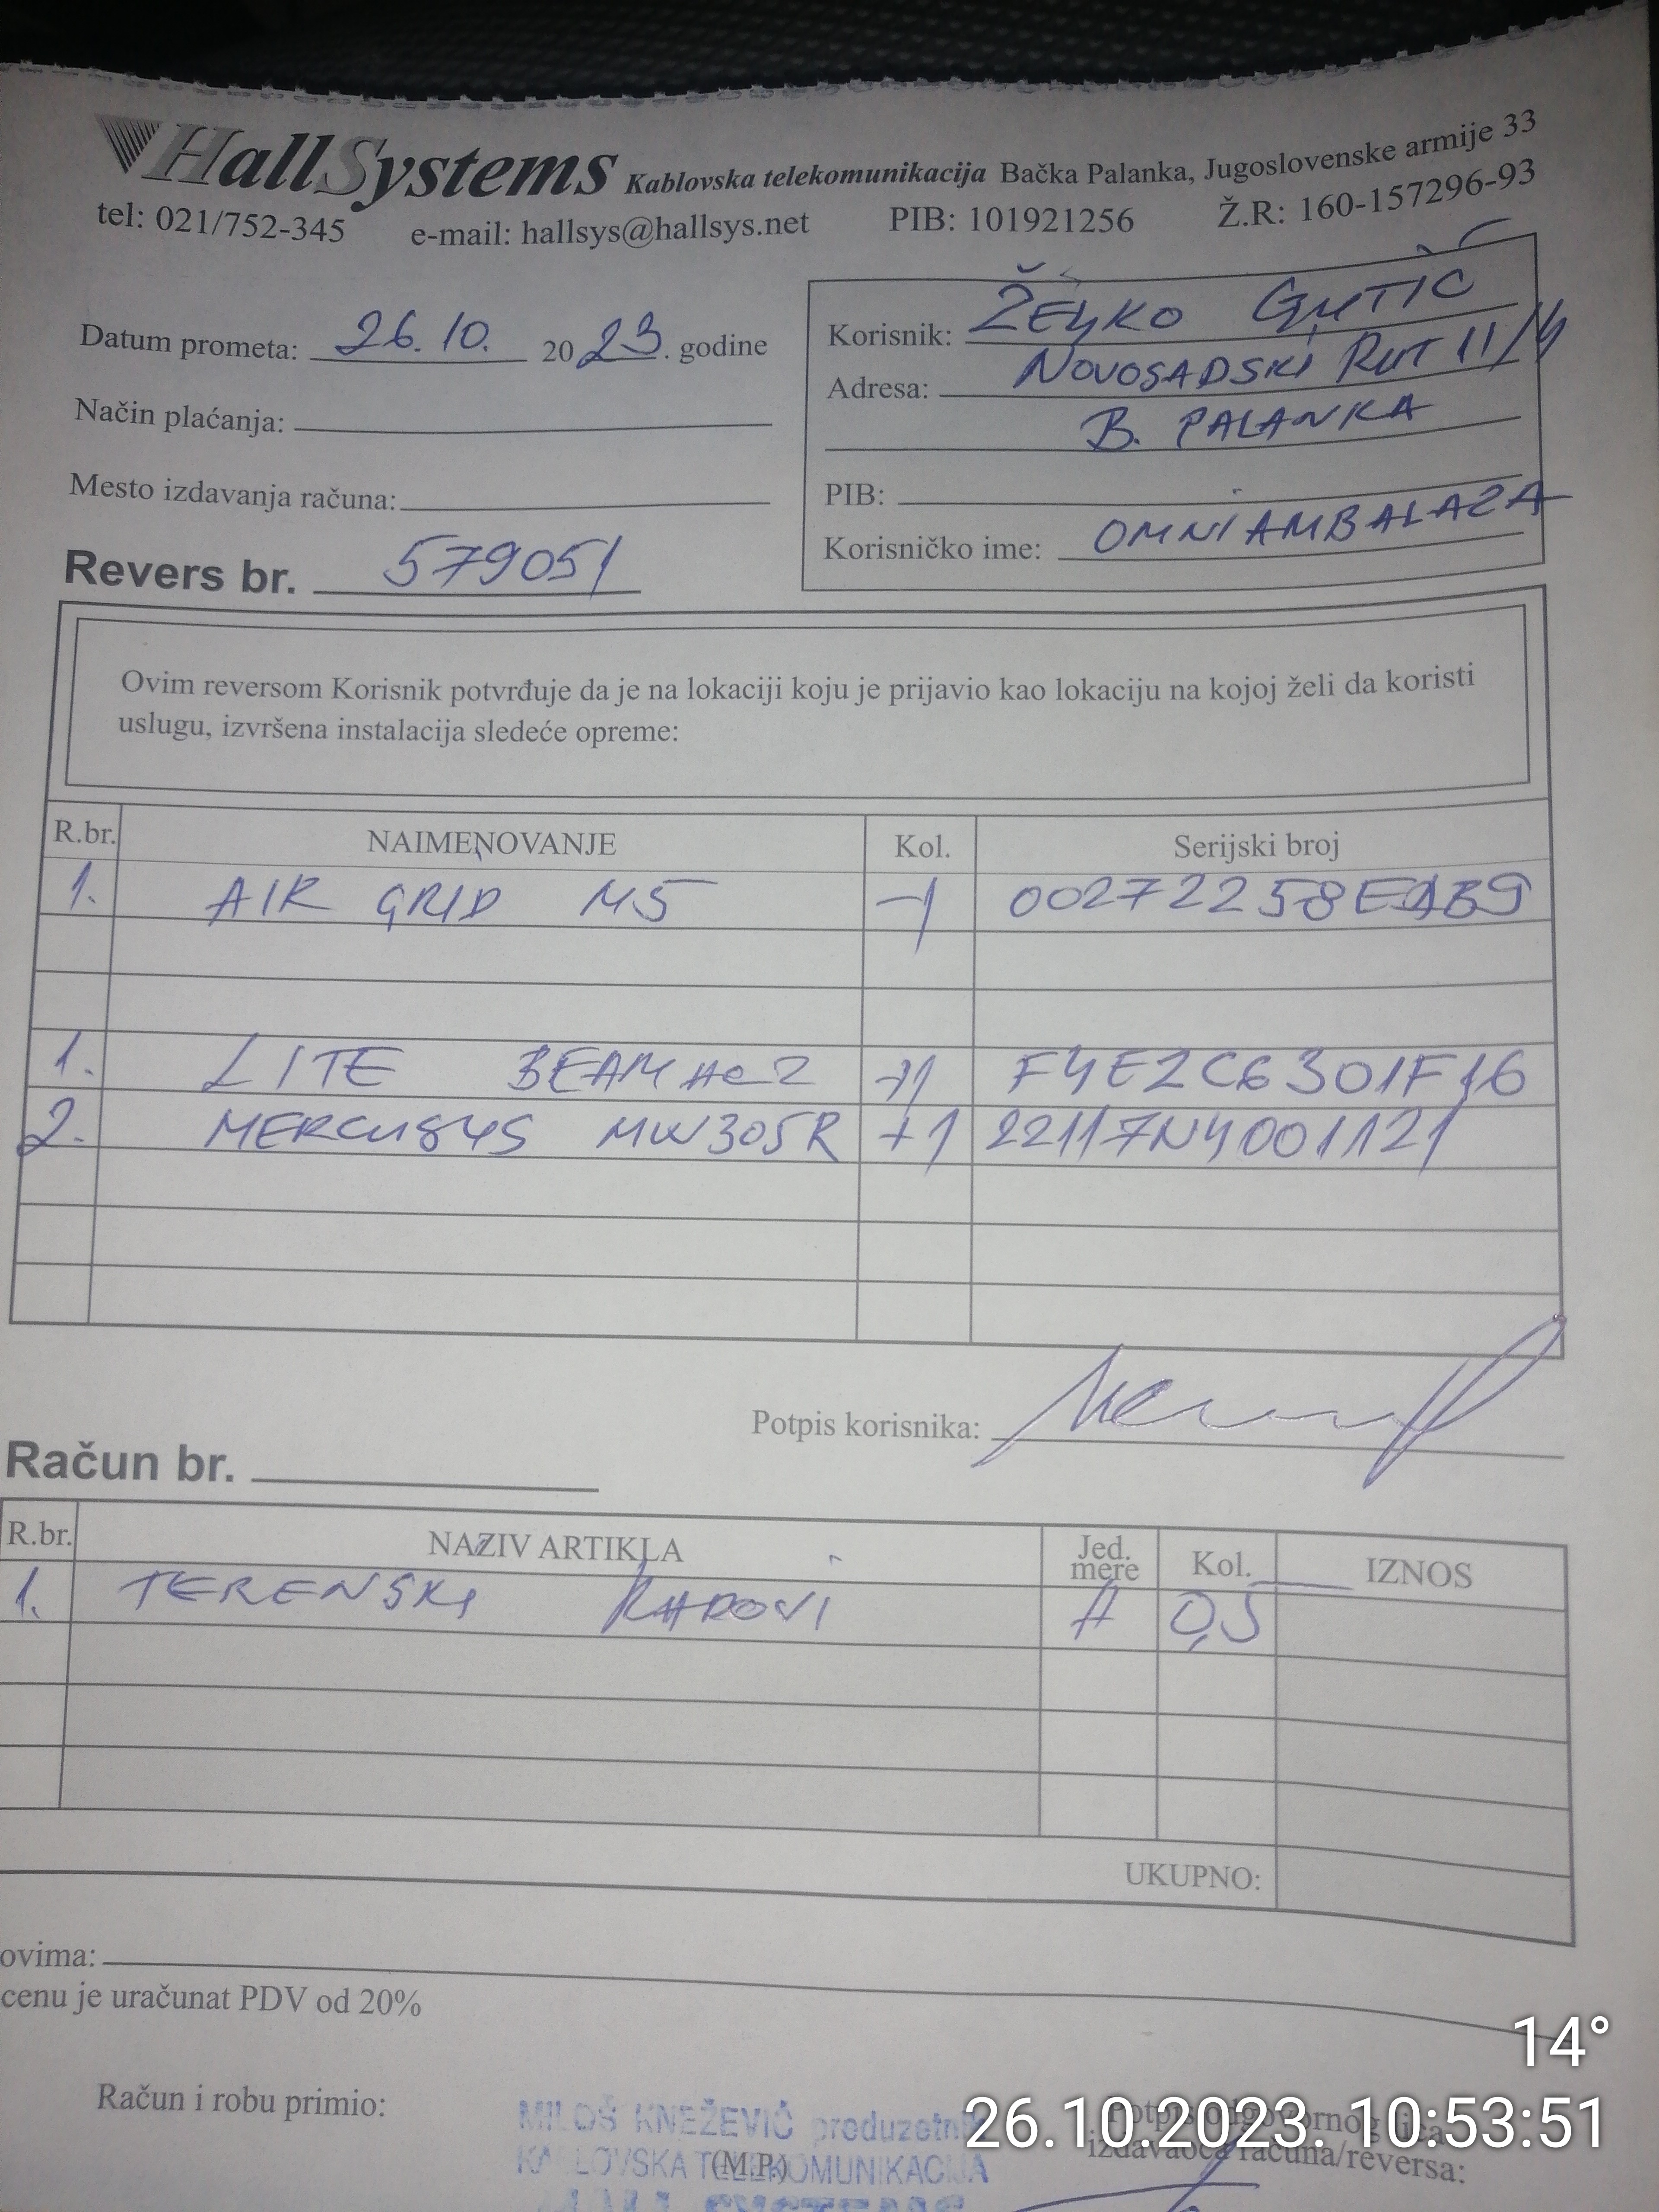 HallSystems Kablovska telekomunikacija Bačka Palanka, Jugoslovenske armije 33
tel: 021/752-345 e-mail: hallsys@hallsys.net PIB: 101921256 Ž.R: 160-157296-93
Datum prometa: 26.10. 2023. godine
Način plaćanja:
Mesto izdavanja računa:
Revers br. 579051
Korisnik: ŽELJKO
Adresa: NOVOSADSKI PUT 11/4
B. PALANKA
PIB:
Korisničko ime: OMNIAMBALAZA
Ovim reversom Korisnik potvrđuje da je na lokaciji koju je prijavio kao lokaciju na kojoj želi da koristi
uslugu, izvršena instalacija sledeće opreme:
R.br. NAIMENOVANJE Kol. Serijski broj
1. AIR GRID M5 -1
1. LITE BEAM AC 2 +1 F4E2C6301F16
2. MERCUSYS MW305R +1 22117N4001121
Potpis korisnika:
Račun br.
R.br. NAZIV ARTIKLA Jed. mere Kol. IZNOS
1. TERENSKI RADOVI H 0,5
UKUPNO:
ovima:
cenu je uračunat PDV od 20%
14°
Račun i robu primio:
MILOŠ KNEŽEVIĆ preduzetnik
KABLOVSKA TELEKOMUNIKACIJA
(M.P.)
HALL SYSTEMS
26.10.2023. 10:53:51
Potpis odgovornog lica
izdavaoca računa/reversa: